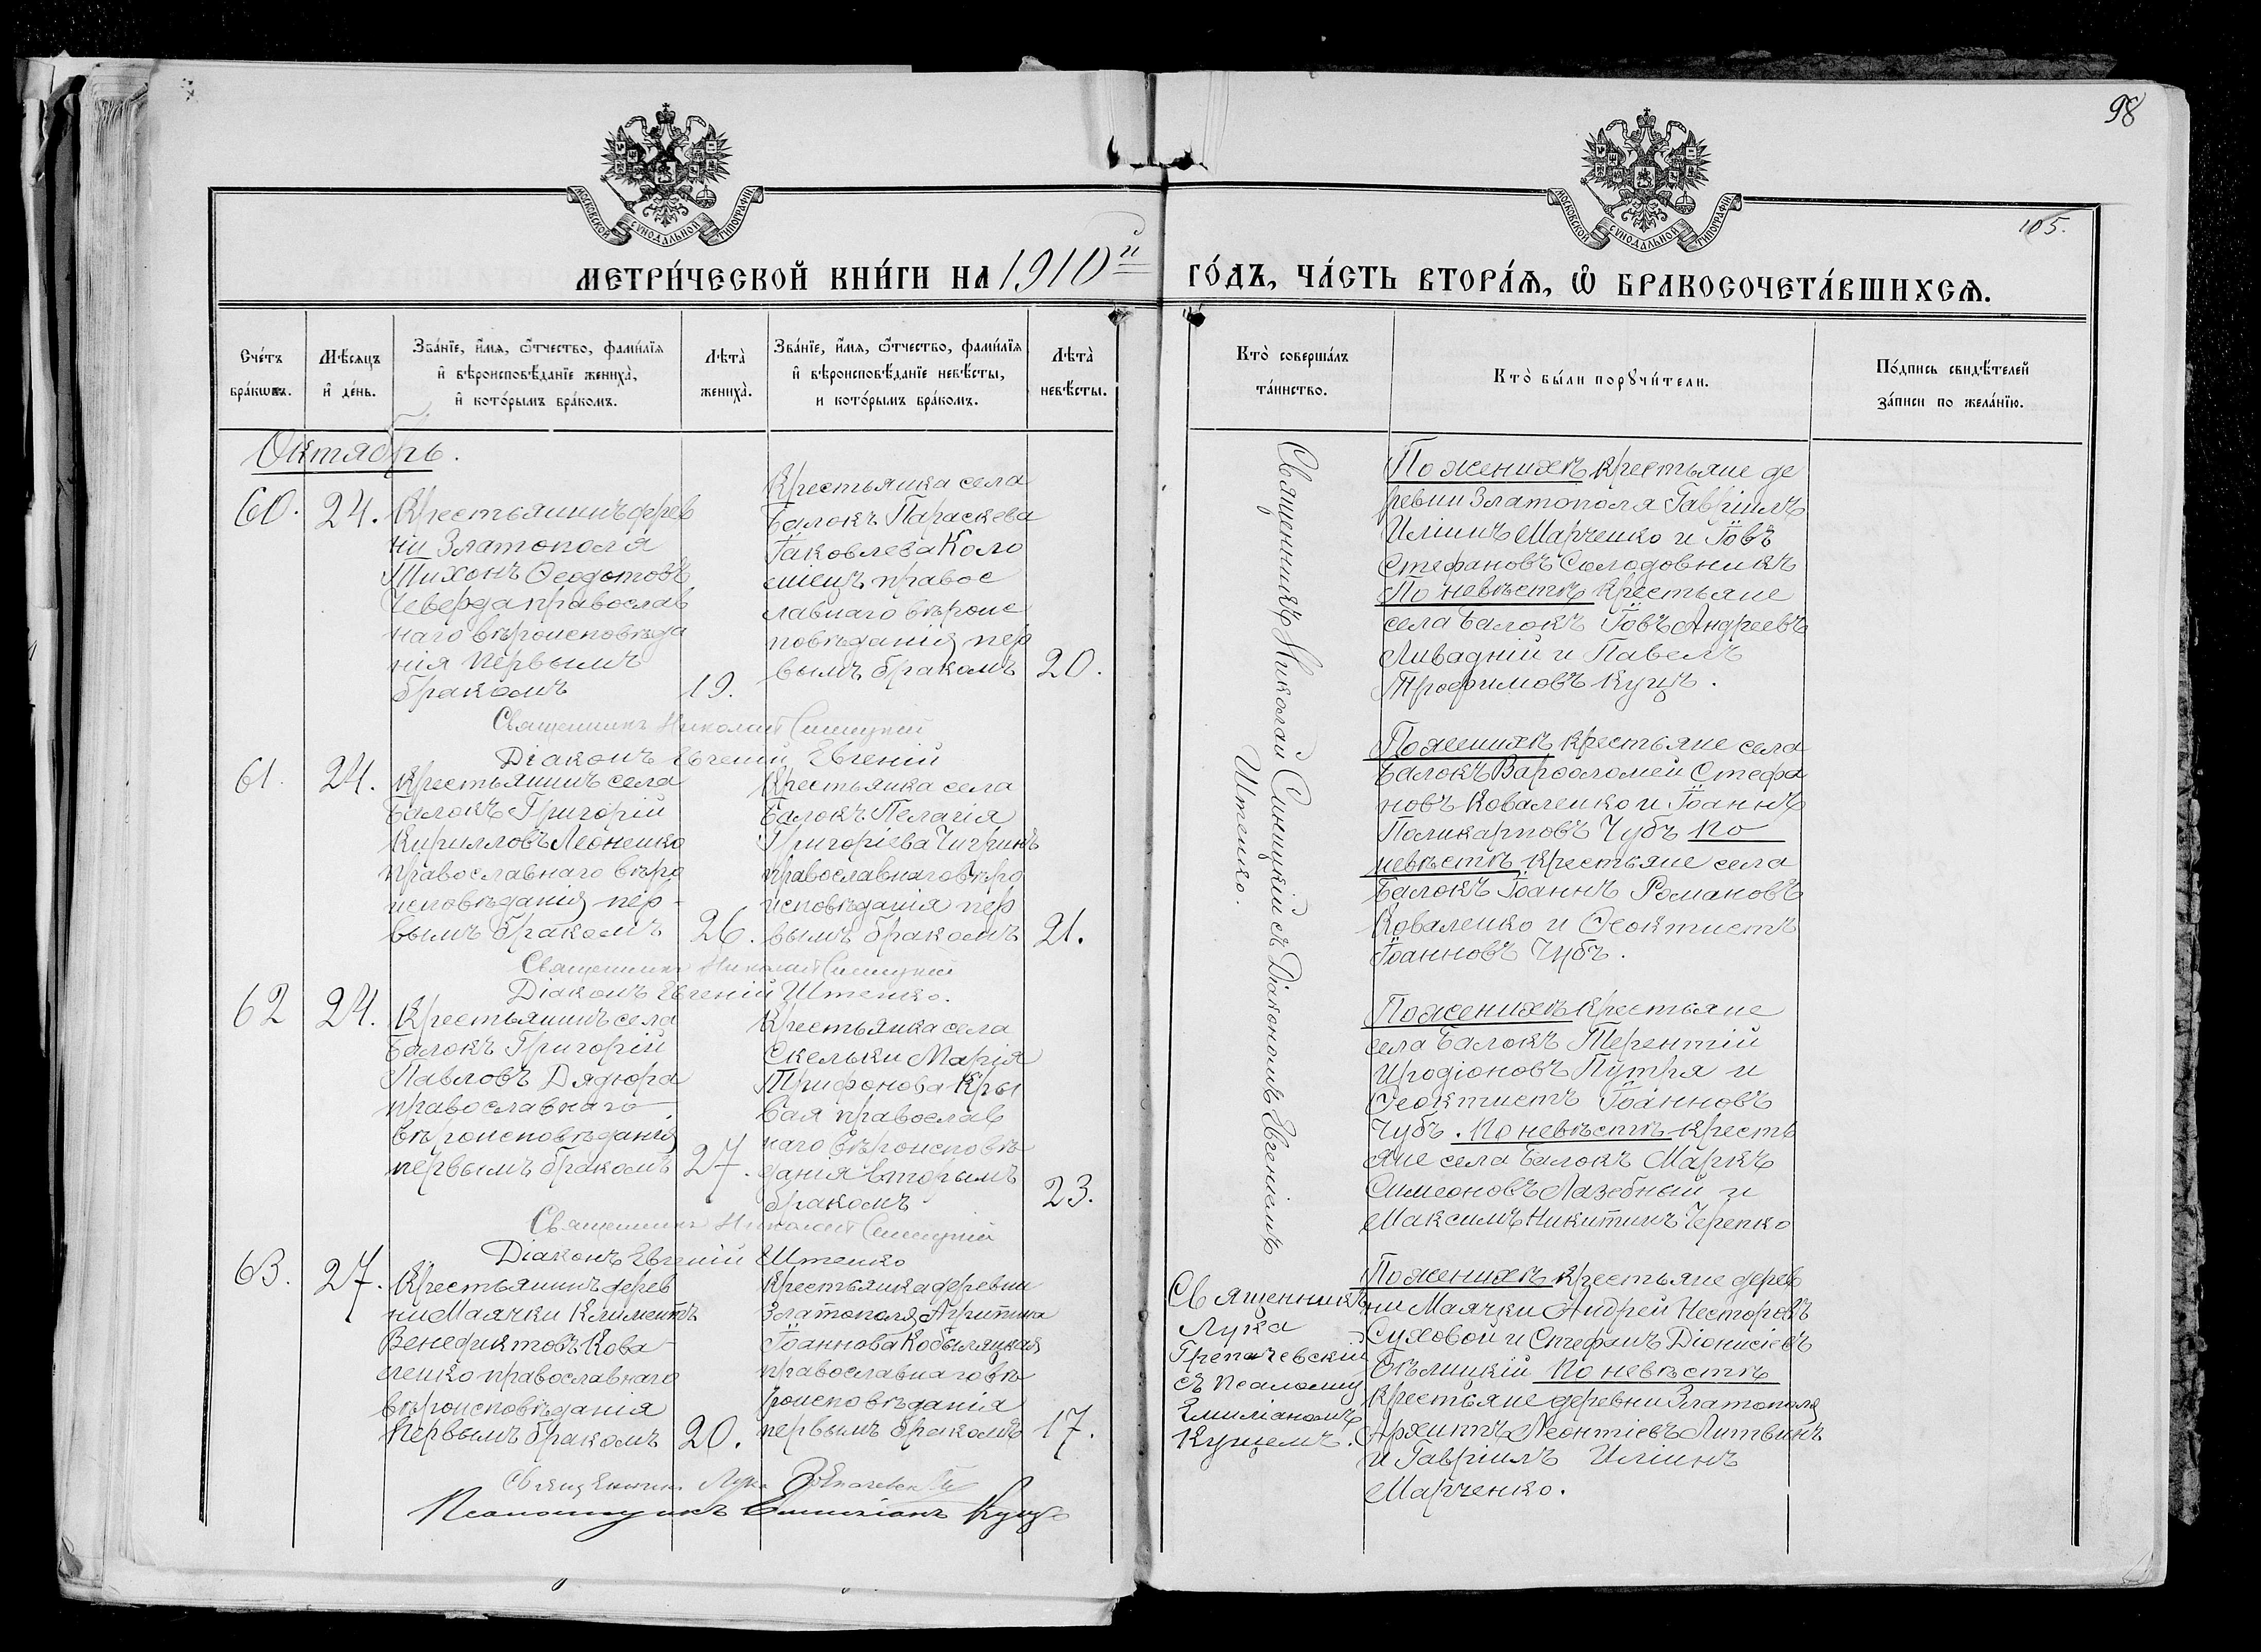 98
105.
МОСКОВСКОЙ СУНОДАЛЬНОЙ ТИПОГРАФІИ
МОСКОВСКОЙ СУНОДАЛЬНОЙ ТИПОГРАФІИ
МЕТРИ́ЧЕСКОЙ КНИ́ГИ НА 1910й ГО́ДЪ, ЧА́СТЬ ВТОРА́Я, Ѡ БРАКОСОЧЕТА́ВШИХСЯ.
Сче́тъ
бра́кωвъ.
Мѣсяцъ
и҆ де́нь.
Зва́нїе, и҆́мя, ѻ҆́тчество, фами́лїя
и҆ вѣроисповѣ́данїе жениха̀,
и҆ кото́рымъ бра́комъ.
Лѣта̀
жениха̀.
Зва́нїе, и҆́мя, ѻ҆́тчество, фами́лїя
и҆ вѣроисповѣ́данїе невѣ́сты,
и кото́рымъ бра́комъ.
Лѣта̀
невѣ́сты.
Кто̀ соверша́лъ
та́инство.
Кто̀ бы́ли порꙋчи́тели.
По́дпись свидѣ́телей
за́писи по жела́нїю.
Октябрь.
60.
24.
Крестьянинъ дерев
ни Златополя
Тихонъ Ѳеодотовъ
Чеверда православ
наго вѣроисповѣда
нія первымъ
бракомъ
19.
Крестьянка села
Балокъ Параскева
Іаковлева Коло
міецъ правос
лавнаго вѣроис
повѣданія пер
вымъ бракомъ
20.
Священникъ Николай Синицкій съ Діакономъ Евгеніемъ
Штепко.
По женихѣ крестьяне де
ревни Златополя Гавріилъ
Иліинъ Марченко и Іовъ
Стефановъ Солодовникъ
По невѣстѣ крестьяне
села Балокъ Іовъ Андреевъ
Ливадній и Павелъ
Трофимовъ Куцъ.
Священникъ Николай Синицкій
Діаконъ Евгеній Евгеній
61.
24.
Крестьянинъ села
Балокъ Григорій
Кирилловъ Леоненко
православнаго вѣро
исповѣданія пер-
вымъ бракомъ
26.
Крестьянка села
Балокъ Пелагія
Григоріева Чигринъ
православнаго вѣро
исповѣданія пер
вымъ бракомъ
21.
По женихѣ крестьяне села
Балокъ Варѳоломей Стефа
новъ Коваленко и Іоаннъ
Поликарповъ Чубъ по
невѣстѣ крестьяне села
Балокъ Іоаннъ Романовъ
Коваленко и Ѳеоктистъ
Іоанновъ Чубъ.
Священникъ Николай Синицкій
Діаконъ Евгеній Штепко.
62
24.
Крестьянинъ села
Балокъ Григорій
Павловъ Дядюра
православнаго
вѣроисповѣданія
первымъ бракомъ
27.
Крестьянка села
Скельки Марія
Трифонова Кры
вая православ
наго вѣроисповѣ
данія вторымъ
бракомъ
23.
По женихѣ крестьяне
села Балокъ Терентій
Иродіоновъ Путря и
Ѳеоктистъ Іоанновъ
Чубъ. По невѣстѣ кресть
яне села Балокъ Маркъ
Симеоновъ Лазебный и
Максимъ Никитинъ Черепко
Священникъ Николай Синицкій
Діаконъ Евгеній Штепко
63.
27.
Крестьянинъ дерев
ни Маячки Климентъ
Венедиктовъ Кова-
ленко православнаго
вѣроисповѣданія
первымъ бракомъ
20.
Крестьянка деревни
Златополя Агрипина
Іоаннова Кобыляцкая
православнаго вѣ
роисповѣданія
первымъ бракомъ
17.
Священникъ
Лука
съ псаломщ
Емиліаномъ
Куцемъ.
По женихѣ крестьяне дерев
ни Маячки Андрей Несторовъ
Суховой и Стефанъ Діонисіевъ
Бѣлицкій по невѣстѣ
крестьяне деревни Златополя
Архипъ Леонтіевъ Литвинъ
и Гавріилъ Иліинъ
Марченко.
Священникъ Лука
Псаломщикъ Емиліанъ Куцъ